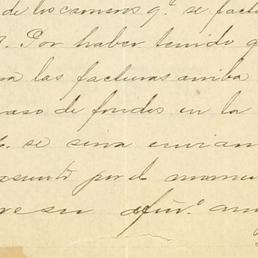 de los carneros q.e se factu
Por haber tenido q
las facturas arriba
caso de fondos en la
se sirva envian
asunto por el
su afmo. am